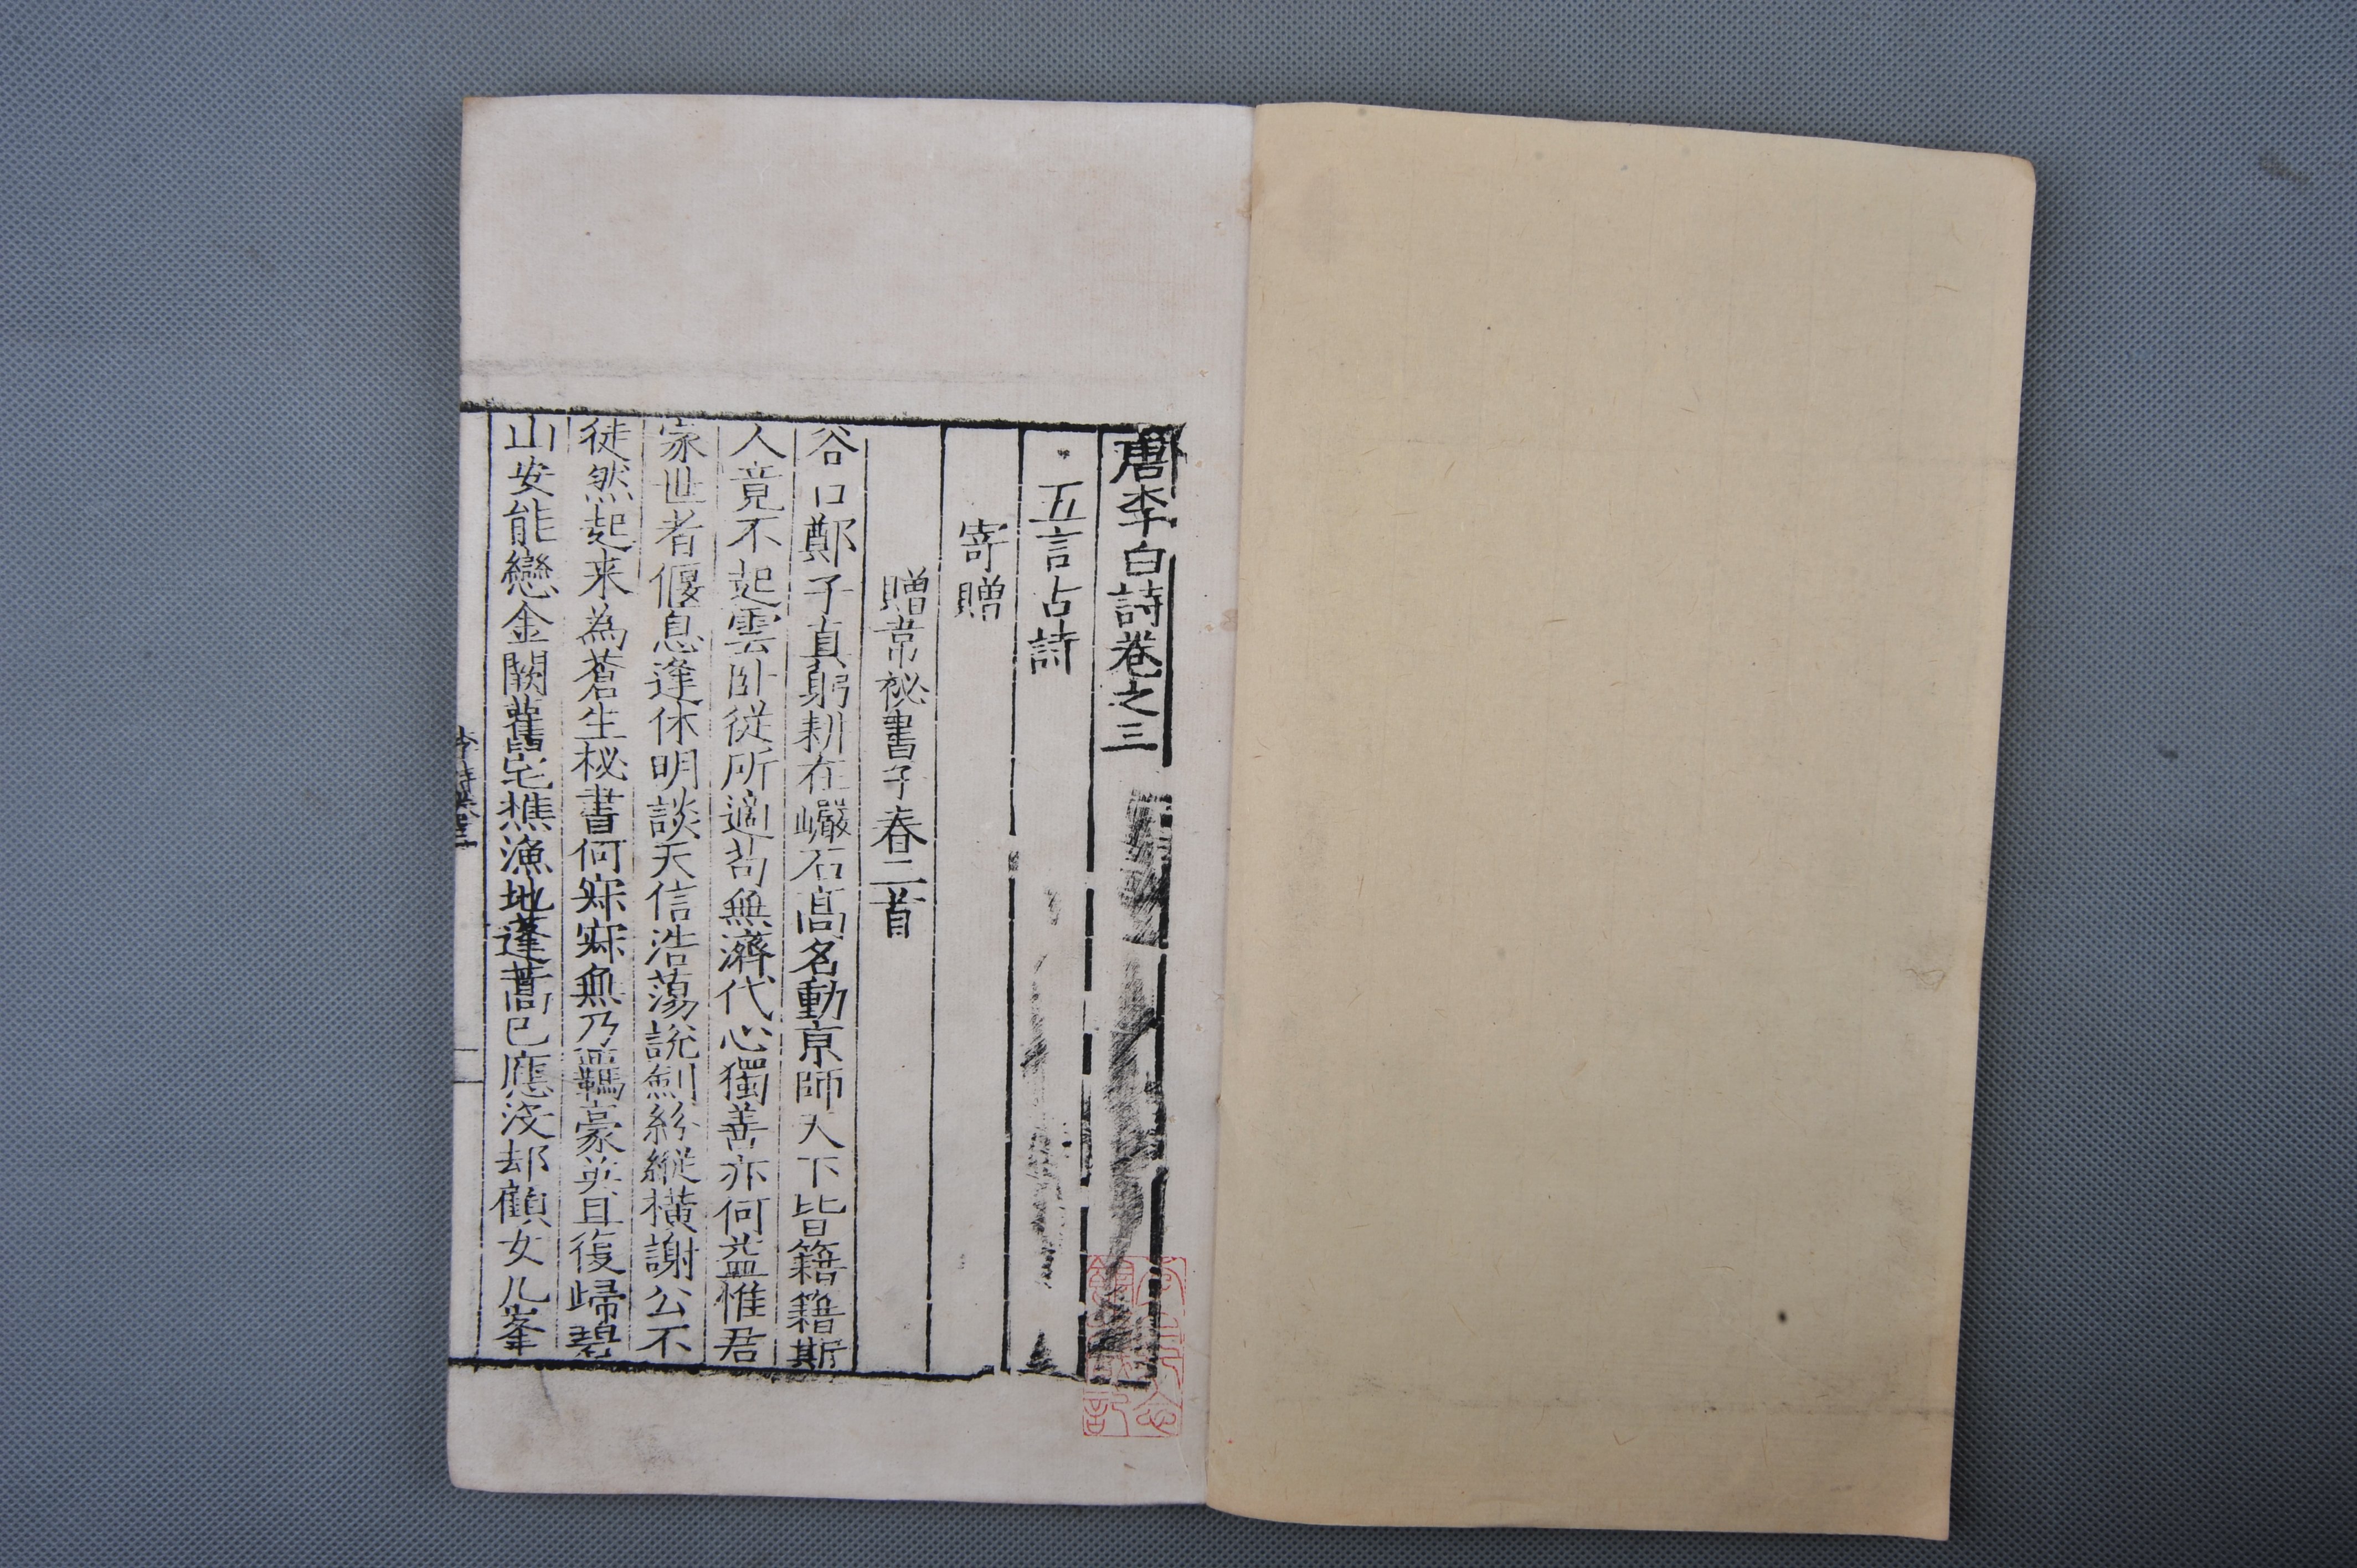 唐李白詩卷之三
五言古詩
寄贈
贈韋祕書子春二首
谷口鄭子真躬耕在巖石高名動京師天下皆籍籍斯
人竟不起雲卧從所適茍無濟代心獨善亦何益惟君
家世者偃息逢休明談天信浩蕩說劍紛縱橫謝公不
徒然起来為蒼生秘書何寂寂無乃羈豪英且復歸碧
山安能戀金闕舊宅樵漁地蓬蒿已應沒却顧女几峯